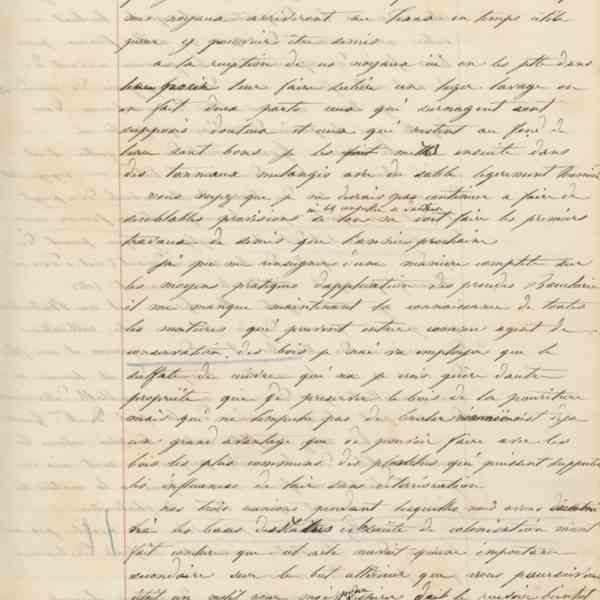 mes noyaux arriveront au havre en temps utile
pour y pouvoir être semis
a la reception de ces noyaux ici on les jette dans
leur faire subir un leger lavage on
en fait deux parts ceux qui surnagent sont
supposés douteux et ceux qui restent au fond de
l'eau sont bons je les fait mettre ensuite dans
des tonneaux melangés avec du sable légerement
vous voyez que je ne devrais pas continuer a faire de
semblables provisions si l'on ne doit faire les premiers
travaux de semis que l'année prochaine
j'ai pu me renseigner d'une manière complète sur
les moyens pratiques d'application des procédés Boucherie
il me manque maintenant la connaissance de toutes
les matières qui peuvent entrer comme agent de
conservation des bois je n'ai vu employer que le
sulfate de cuivre qui n'a je crois guère d'autre
propriété que de preserver le bois de la pourriture
mais qui ne l'empêche pas de bruler c'est deja
un grand avantage que de pouvoir faire avec les
bois les plus communs des qui puissent supporter
les influences de l'air sans détérioration
nos trois reunions pendant lesquelles nous avons
les bases des de colonisation m'ont
fait conclure que cet acte n'avait qu'une importance
secondaire sur le but ultérieur que vous poursuivez
était un motif pour moi de bientôt